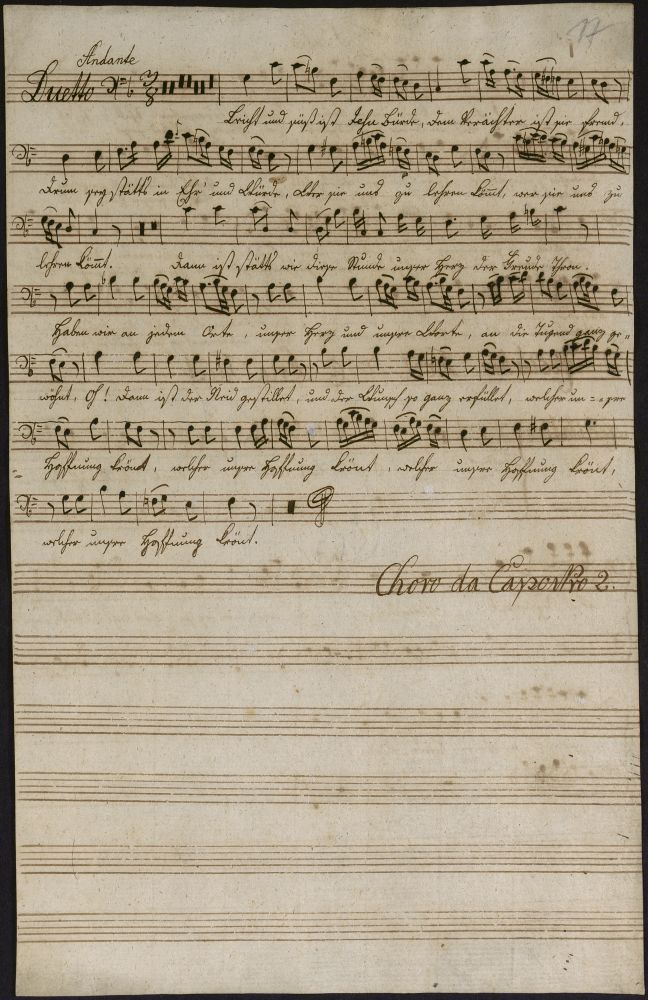 17
Andante
Duetto 3/8
Leicht und süß ist Jesu Bürde, dem Verächter ist sie fremd,
Drum seÿ stätts in Ehr' und Würde, wer sie uns zu lehren kömt, wer sie uns zu
lehren kömt. Dann ist stätts wie diese Stunde unser Herz der Freude Thron.
Haben wir an jedem Orte, unser Herz und unsre Worte, an die Tugend ganz ge=
wöhnt, O! dann ist der Neid gestillet, und der Wunsch so ganz erfüllet, welcher un==sre
Hoffnung krönt, welcher unsre Hoffnung krönt, welcher unsre Hoffnung krönt,
welcher unsre Hoffnung krönt.
Choro da Capo Nro 2.